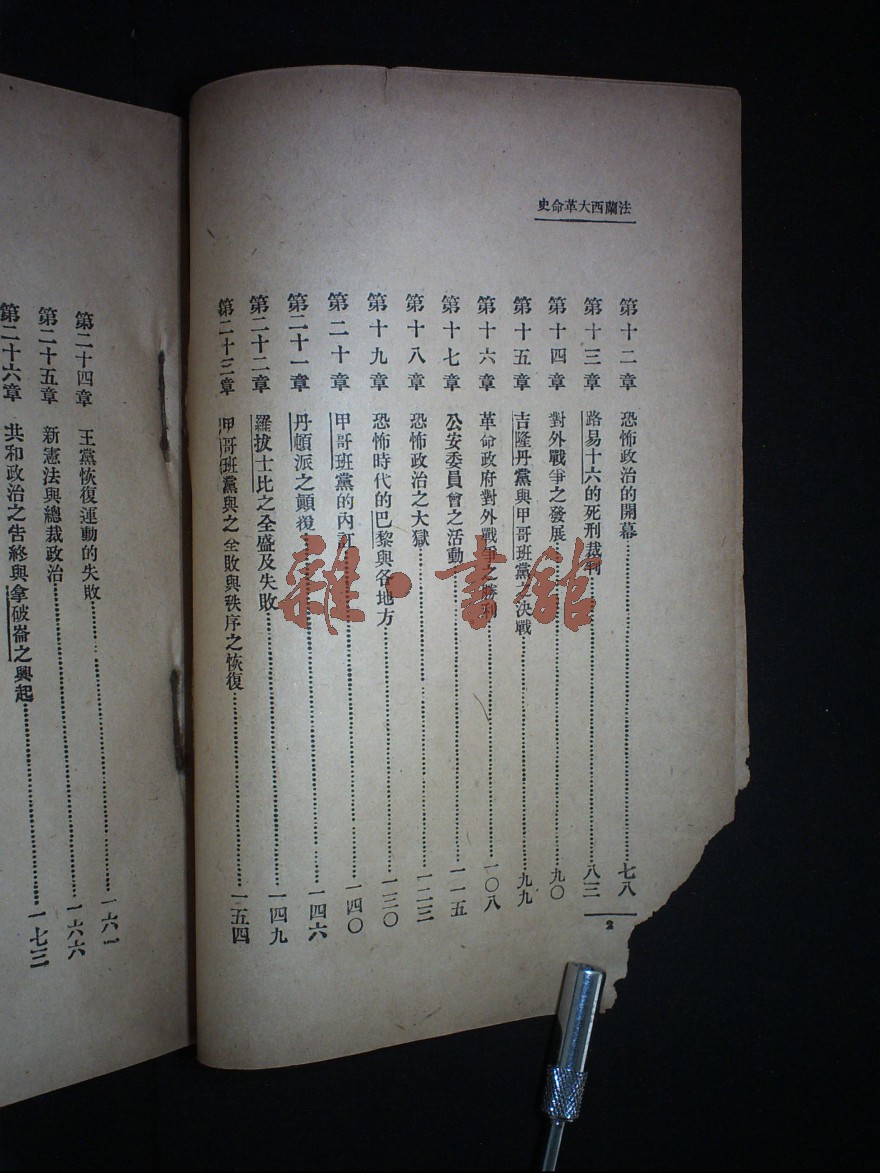 法蘭西大革命史
第十二章 恐怖政治的開幕……七八
第十三章 路易十六的死刑裁判……八三
第十四章 對外戰爭之發展……九〇
第十五章 吉隆丹黨與甲哥班黨之決戰……九九
第十六章 革命政府對外戰爭之勝利……一〇八
第十七章 公安委員會之活動……一一五
第十八章 恐怖政治之大獄……一二三
第十九章 恐怖時代的巴黎與各地方……一三〇
第二十章 甲哥班黨的內訌……一四〇
第二十一章 丹頓派之顛復……一四六
第二十二章 羅拔士比之全盛及失敗……一四九
第二十三章 甲哥班黨與之全敗與秩序之恢復……一五四
2
第二十四章 王黨恢復運動的失敗……一六一
第二十五章 新憲法與總裁政治……一六六
第二十六章 共和政治之告終與拿破崙之興起……一七三
雜·書館